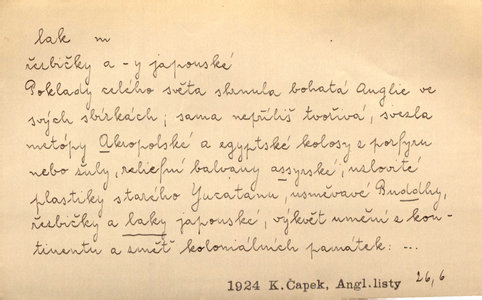 lak m
řezbičky a -y japonské
Poklady celého světa shrnula bohatá Anglie ve
svých sbírkách; sama nepříliš tvořivá, svezla
metópy Akropolské a egyptské kolosy z porfyru
nebo žuly, reliefní balvany assyrské, uzlovité
plastiky starého Yucatanu, usměvavé Buddhy,
řezbičky a laky japonské, výkvět umění z kon-
tinentu a změť koloniálních památek: ...
1924 K. Čapek, Angl.listy 26,6